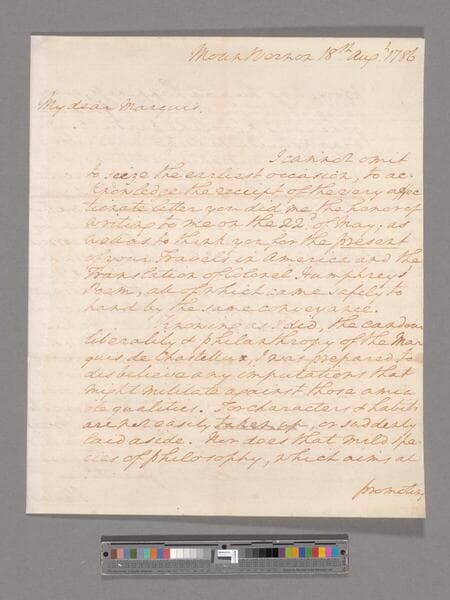 Mount Vernon 18th Augt 1786
My dear Marquis.
I cannot omit
to seize the earliest occasion, to ac-
knowledge the receipt of the very affec
tionate letter you did me the honor of
writing to me on the 22d of May, as
well as to thank you for the present
of your Travels in America and the
Translation of Colonel Humphreys'
Poem, all of which came safely to
hand by the same conveyance.
Knowing as I did, the candour
liberality & philanthropy of the Mar
quis de Chastellux, I was prepared to
disbelieve any imputations that
might militate against those amia
ble qualities. For characters & habits
are not easily taken up, or suddenly
laid aside. Nor does that mild spe-
cies of philosophy, which aims at
promoting